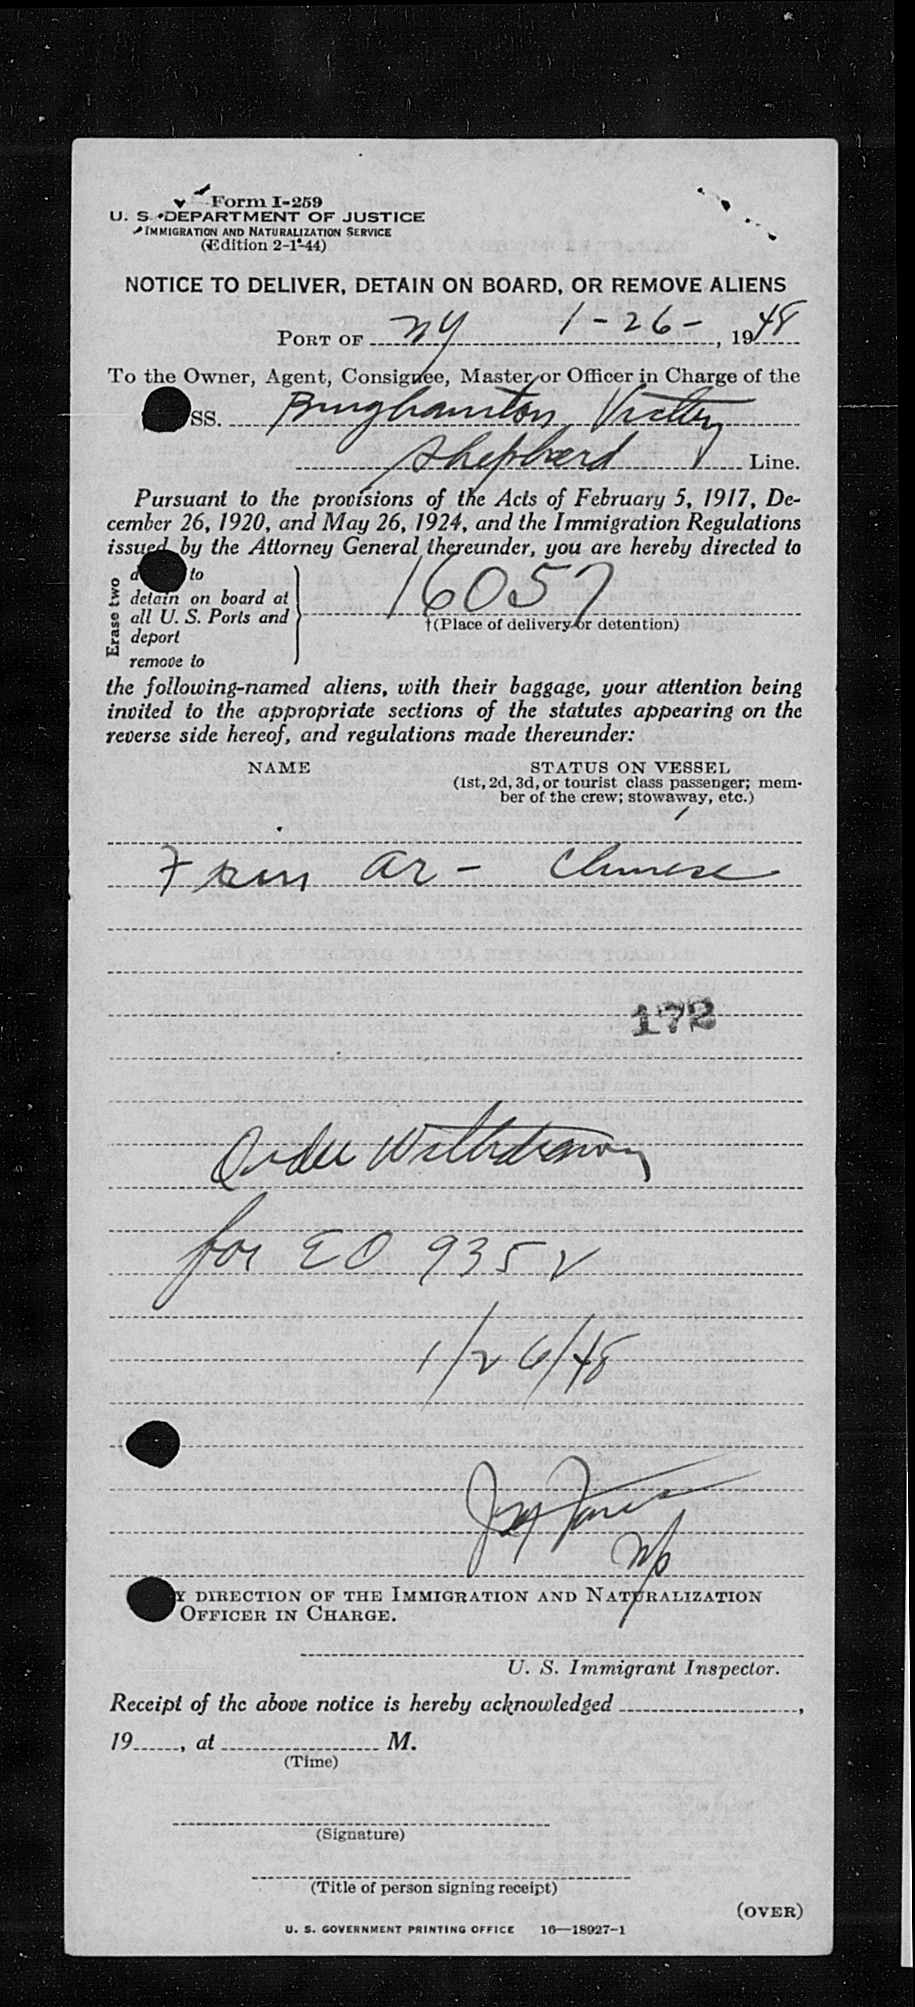 Form I-259
U. S. DEPARTMENT OF JUSTICE
IMMIGRATION AND NATURALIZATION SERVICE
(Edition 2-1-44)
NOTICE TO DELIVER, DETAIN ON BOARD, OR REMOVE ALIENS
PORT OF NY 1-26-, 1948
To the Owner, Agent, Consignee, Master, or Officer in Charge of the
SS. Binghamton Victory
Shepherd Line.
Pursuant to the provisions of the Acts of February 5, 1917, De-
cember 26, 1920, and May 26, 1924, and the Immigration Regulations
issued by the Attorney General thereunder, you are hereby directed to
Erase two
to
detain on board at
all U. S. Ports and
deport
remove to
16057
†(Place of delivery or detention)
the following-named aliens, with their baggage, your attention being
invited to the appropriate sections of the statutes appearing on the
reverse side hereof, and regulations made thereunder:
NAME STATUS ON VESSEL
(1st, 2d, 3d, or tourist class passenger; mem-
ber of the crew; stowaway, etc.)
ar- Chinese
172
Order Withdrawn
for EO 9352
1/26/48
BY DIRECTION OF THE IMMIGRATION AND NATURALIZATION
OFFICER IN CHARGE.
U. S. Immigrant Inspector.
Receipt of the above notice is hereby acknowledged,
19, at M.
(Time)
(Signature)
(Title of person signing receipt)
(OVER)
U. S. GOVERNMENT PRINTING OFFICE 16—18927-1